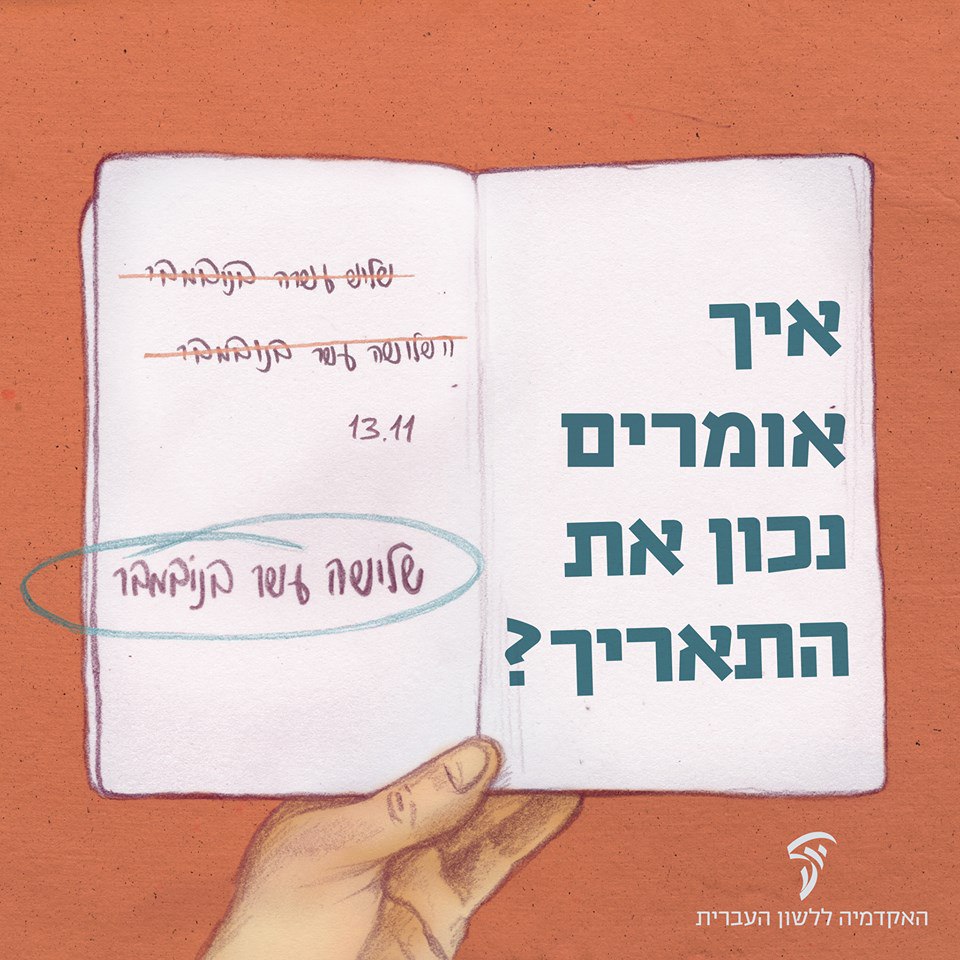 איך
אומרים
נכון את
התאריך?
שלוש עשרה בנובמבר
השלושה עשר בנובמבר
13.11
שלושה עשר בנובמבר
האקדמיה ללשון העברית